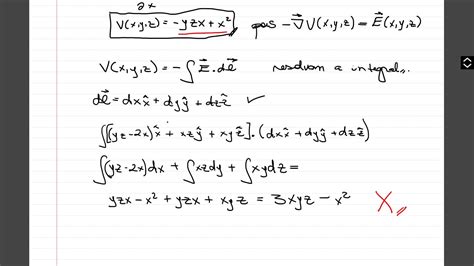 ∂x
V(x,y,z) = -yzx + x² pois -∇⃗V(x,y,z) = E⃗(x,y,z)
V(x,y,z) = -∫E⃗.dl⃗ resolvam a integral.
dl⃗ = dx x̂ + dy ŷ + dz ẑ ✓
∫[(yz-2x)x̂ + xzŷ + xyẑ].(dxx̂ + dyŷ + dzẑ)
∫(yz-2x)dx + ∫xzdy + ∫xydz =
yzx - x² + yzx + xyz = 3xyz - x² X